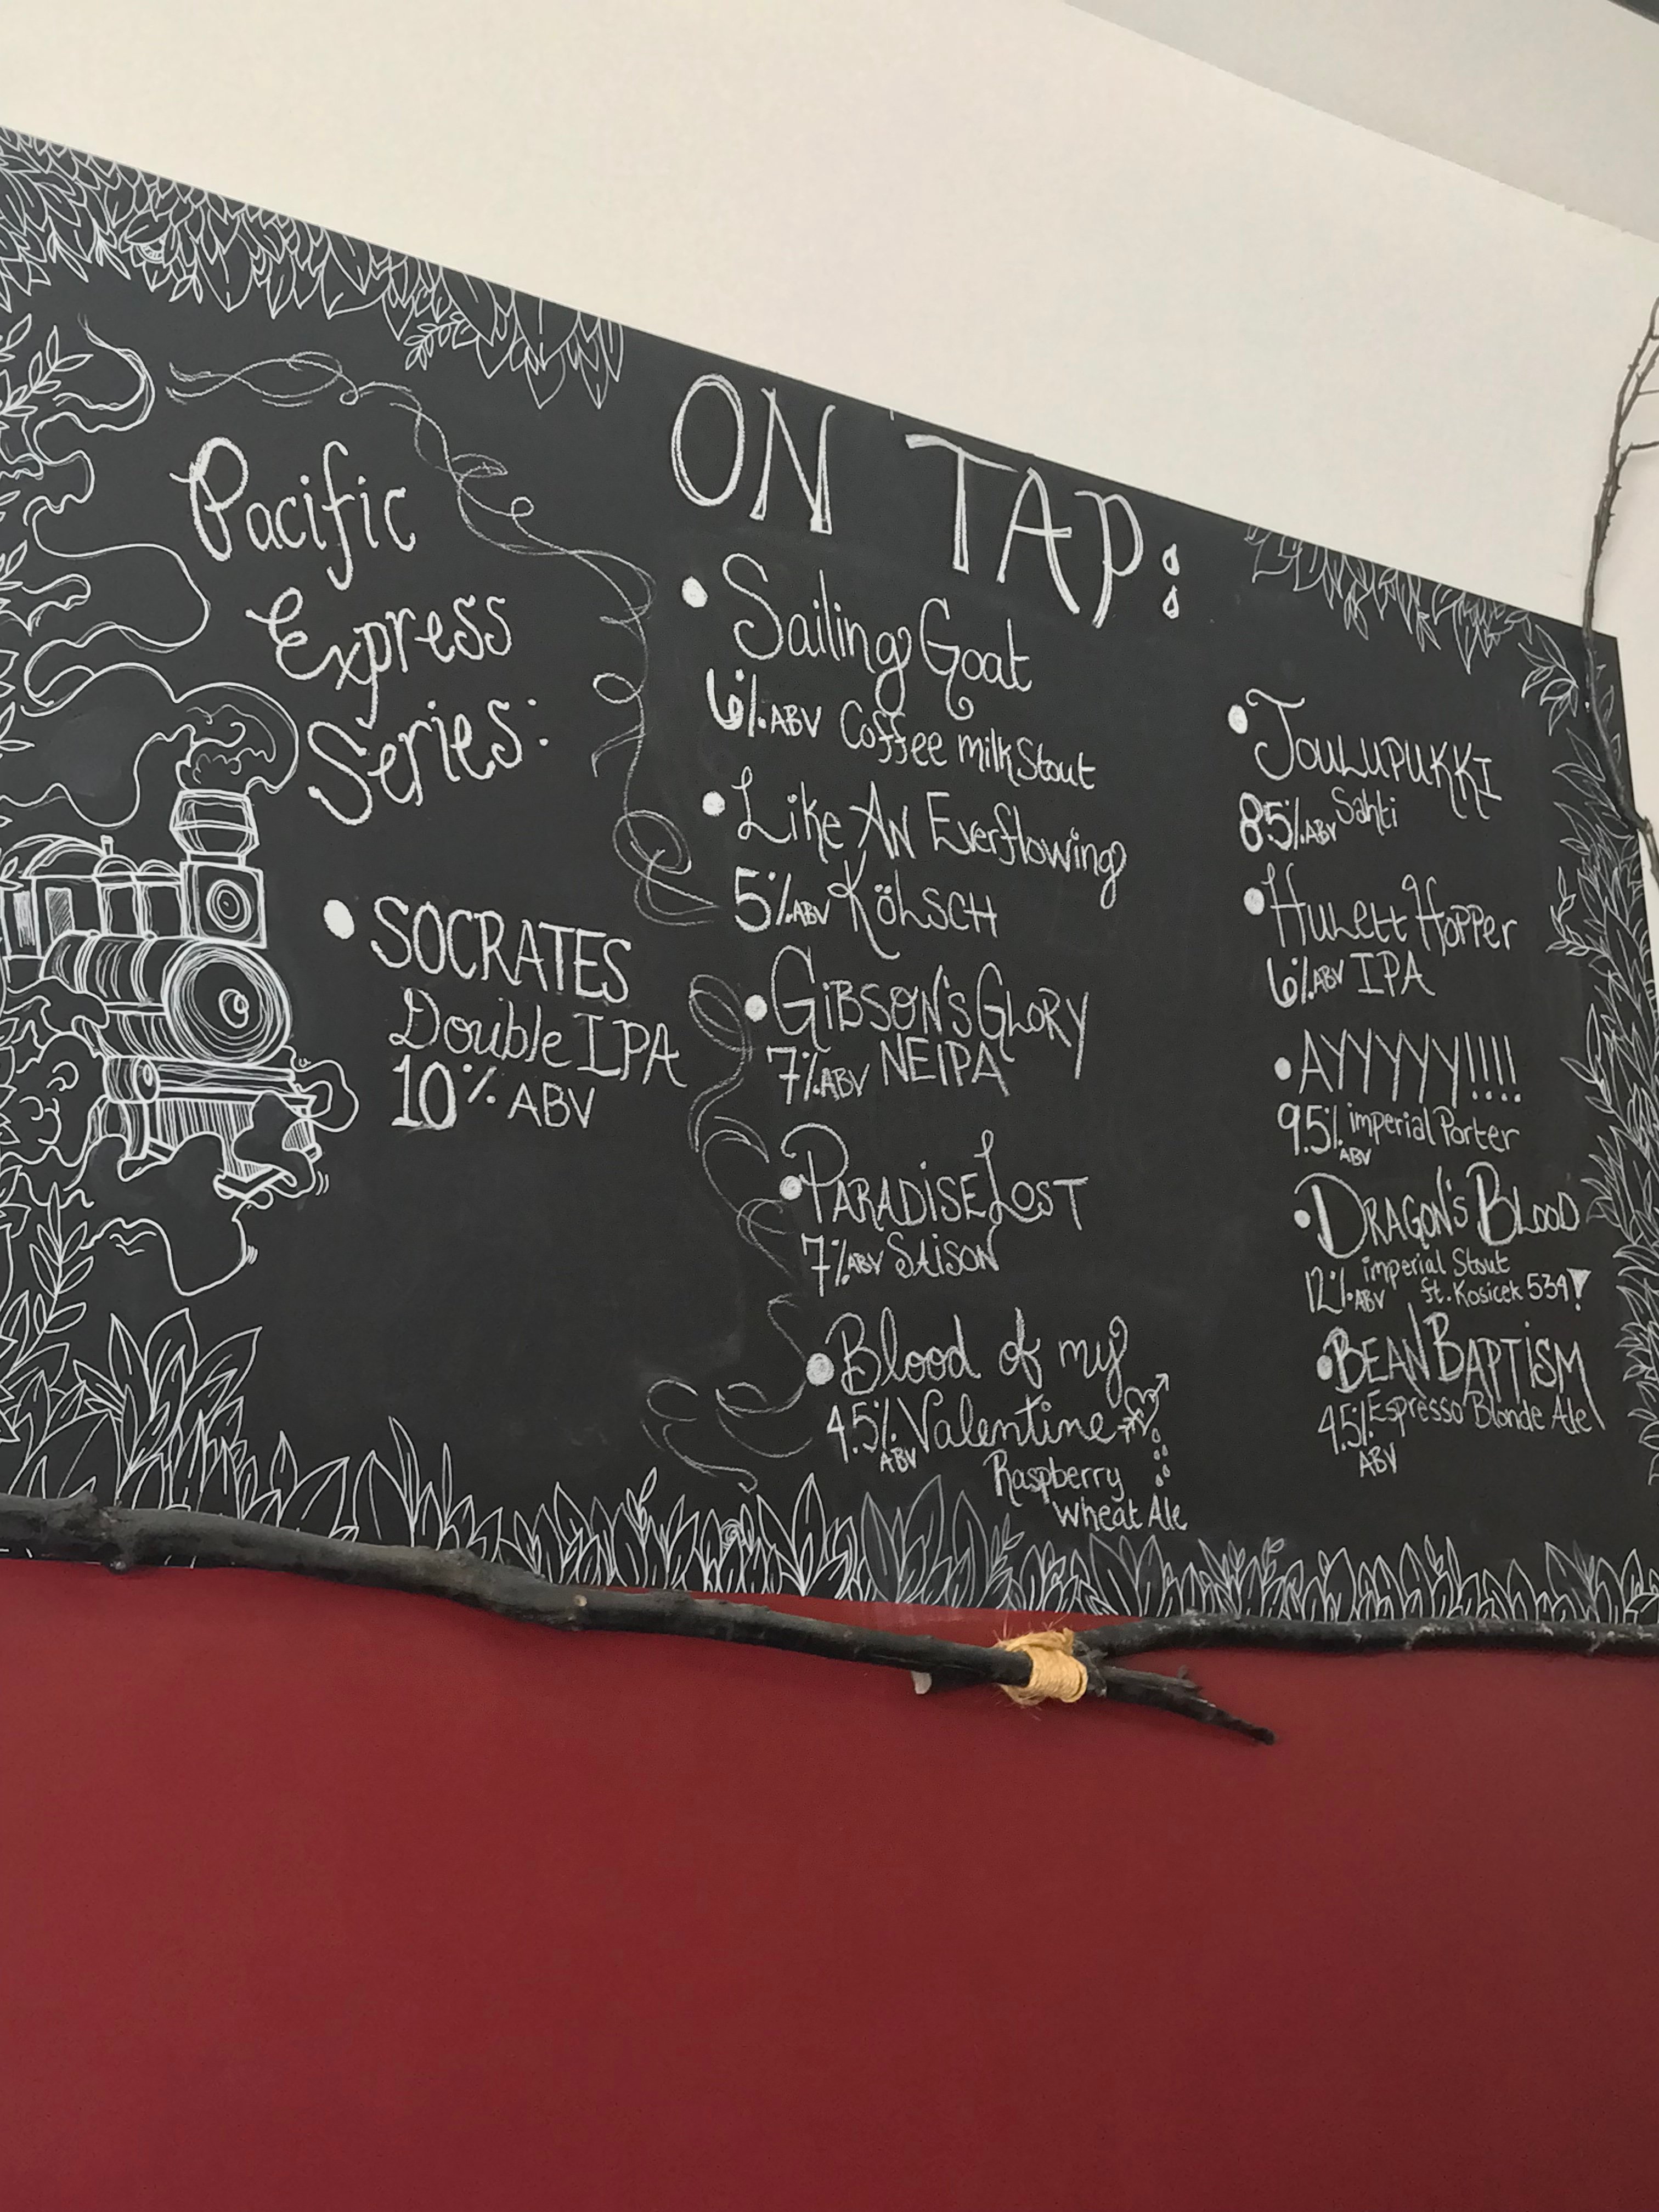 Pacific
Express
Series:
• SOCRATES
Double IPA
10% ABV
ON TAP:
• Sailing Goat
6% ABV Coffee milk Stout
• Like AN Everflowing
5% ABV KÖLSCH
• GiBSON'S GLORY
7% ABV NEIPA
• PARADISE LOST
7% ABV SAISON
• Blood of my
4.5% ABV Valentine
Raspberry
Wheat Ale
• JOULUPUKKI
8.5% ABV Sahti
• HULett HOPPer
6% ABV IPA
• AYYYYYY!!!!
9.5% ABV imperial Porter
• DRAGON'S BLOOD
imperial Stout
12% ABV ft. Kosicek 534
• BEAN BAPTISM
4.5% ABV Espresso Blonde Ale